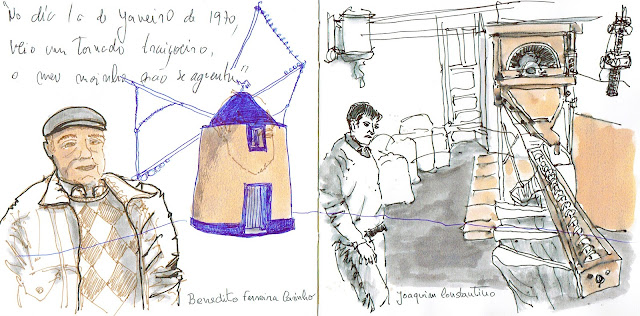 "No dia 1º de Janeiro de 1970,
veio um tornado traiçoeiro,
o meu moinho não se aguentou"
Benedito Ferreira
Joaquim Constantino